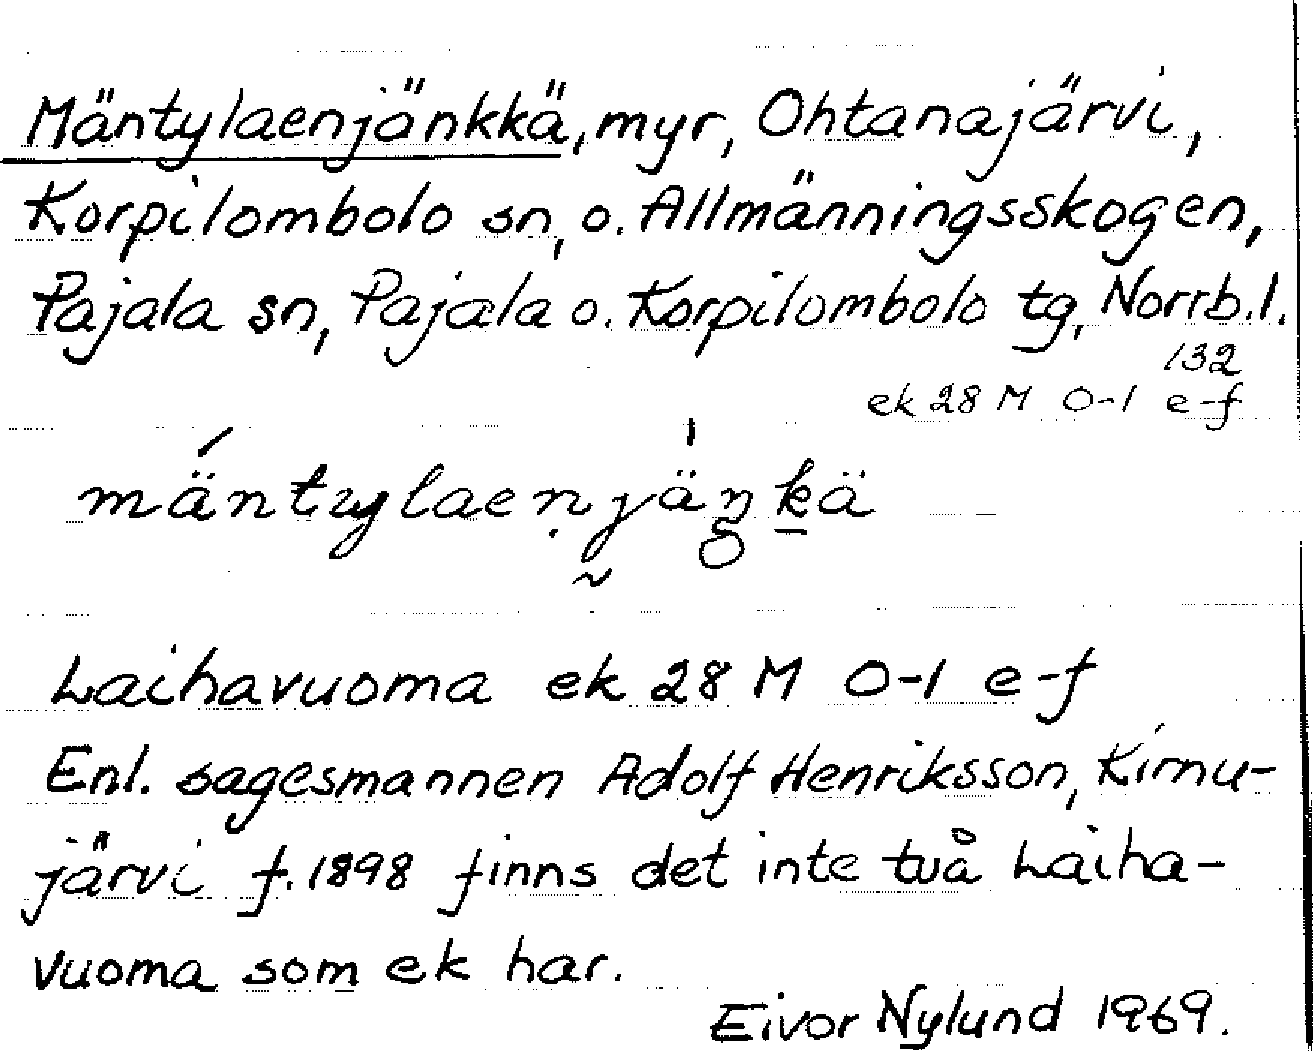 Mäntylaenjänkkä, myr, Ohtanajärvi,
Korpilombolo sn, o. Allmänningsskogen,
Pajala sn, Pajala o. Korpilombolo tg, Norrb.l.
132
ek 28 M 0-1 e-f
mäntylaenjäŋkä
Laihavuoma ek 28 M 0-1 e-f
Enl. sagesmannen Adolf Henriksson, Kirnu-
järvi f. 1898 finns det inte två Laiha-
vuoma som ek har.
Eivor Nylund 1969.